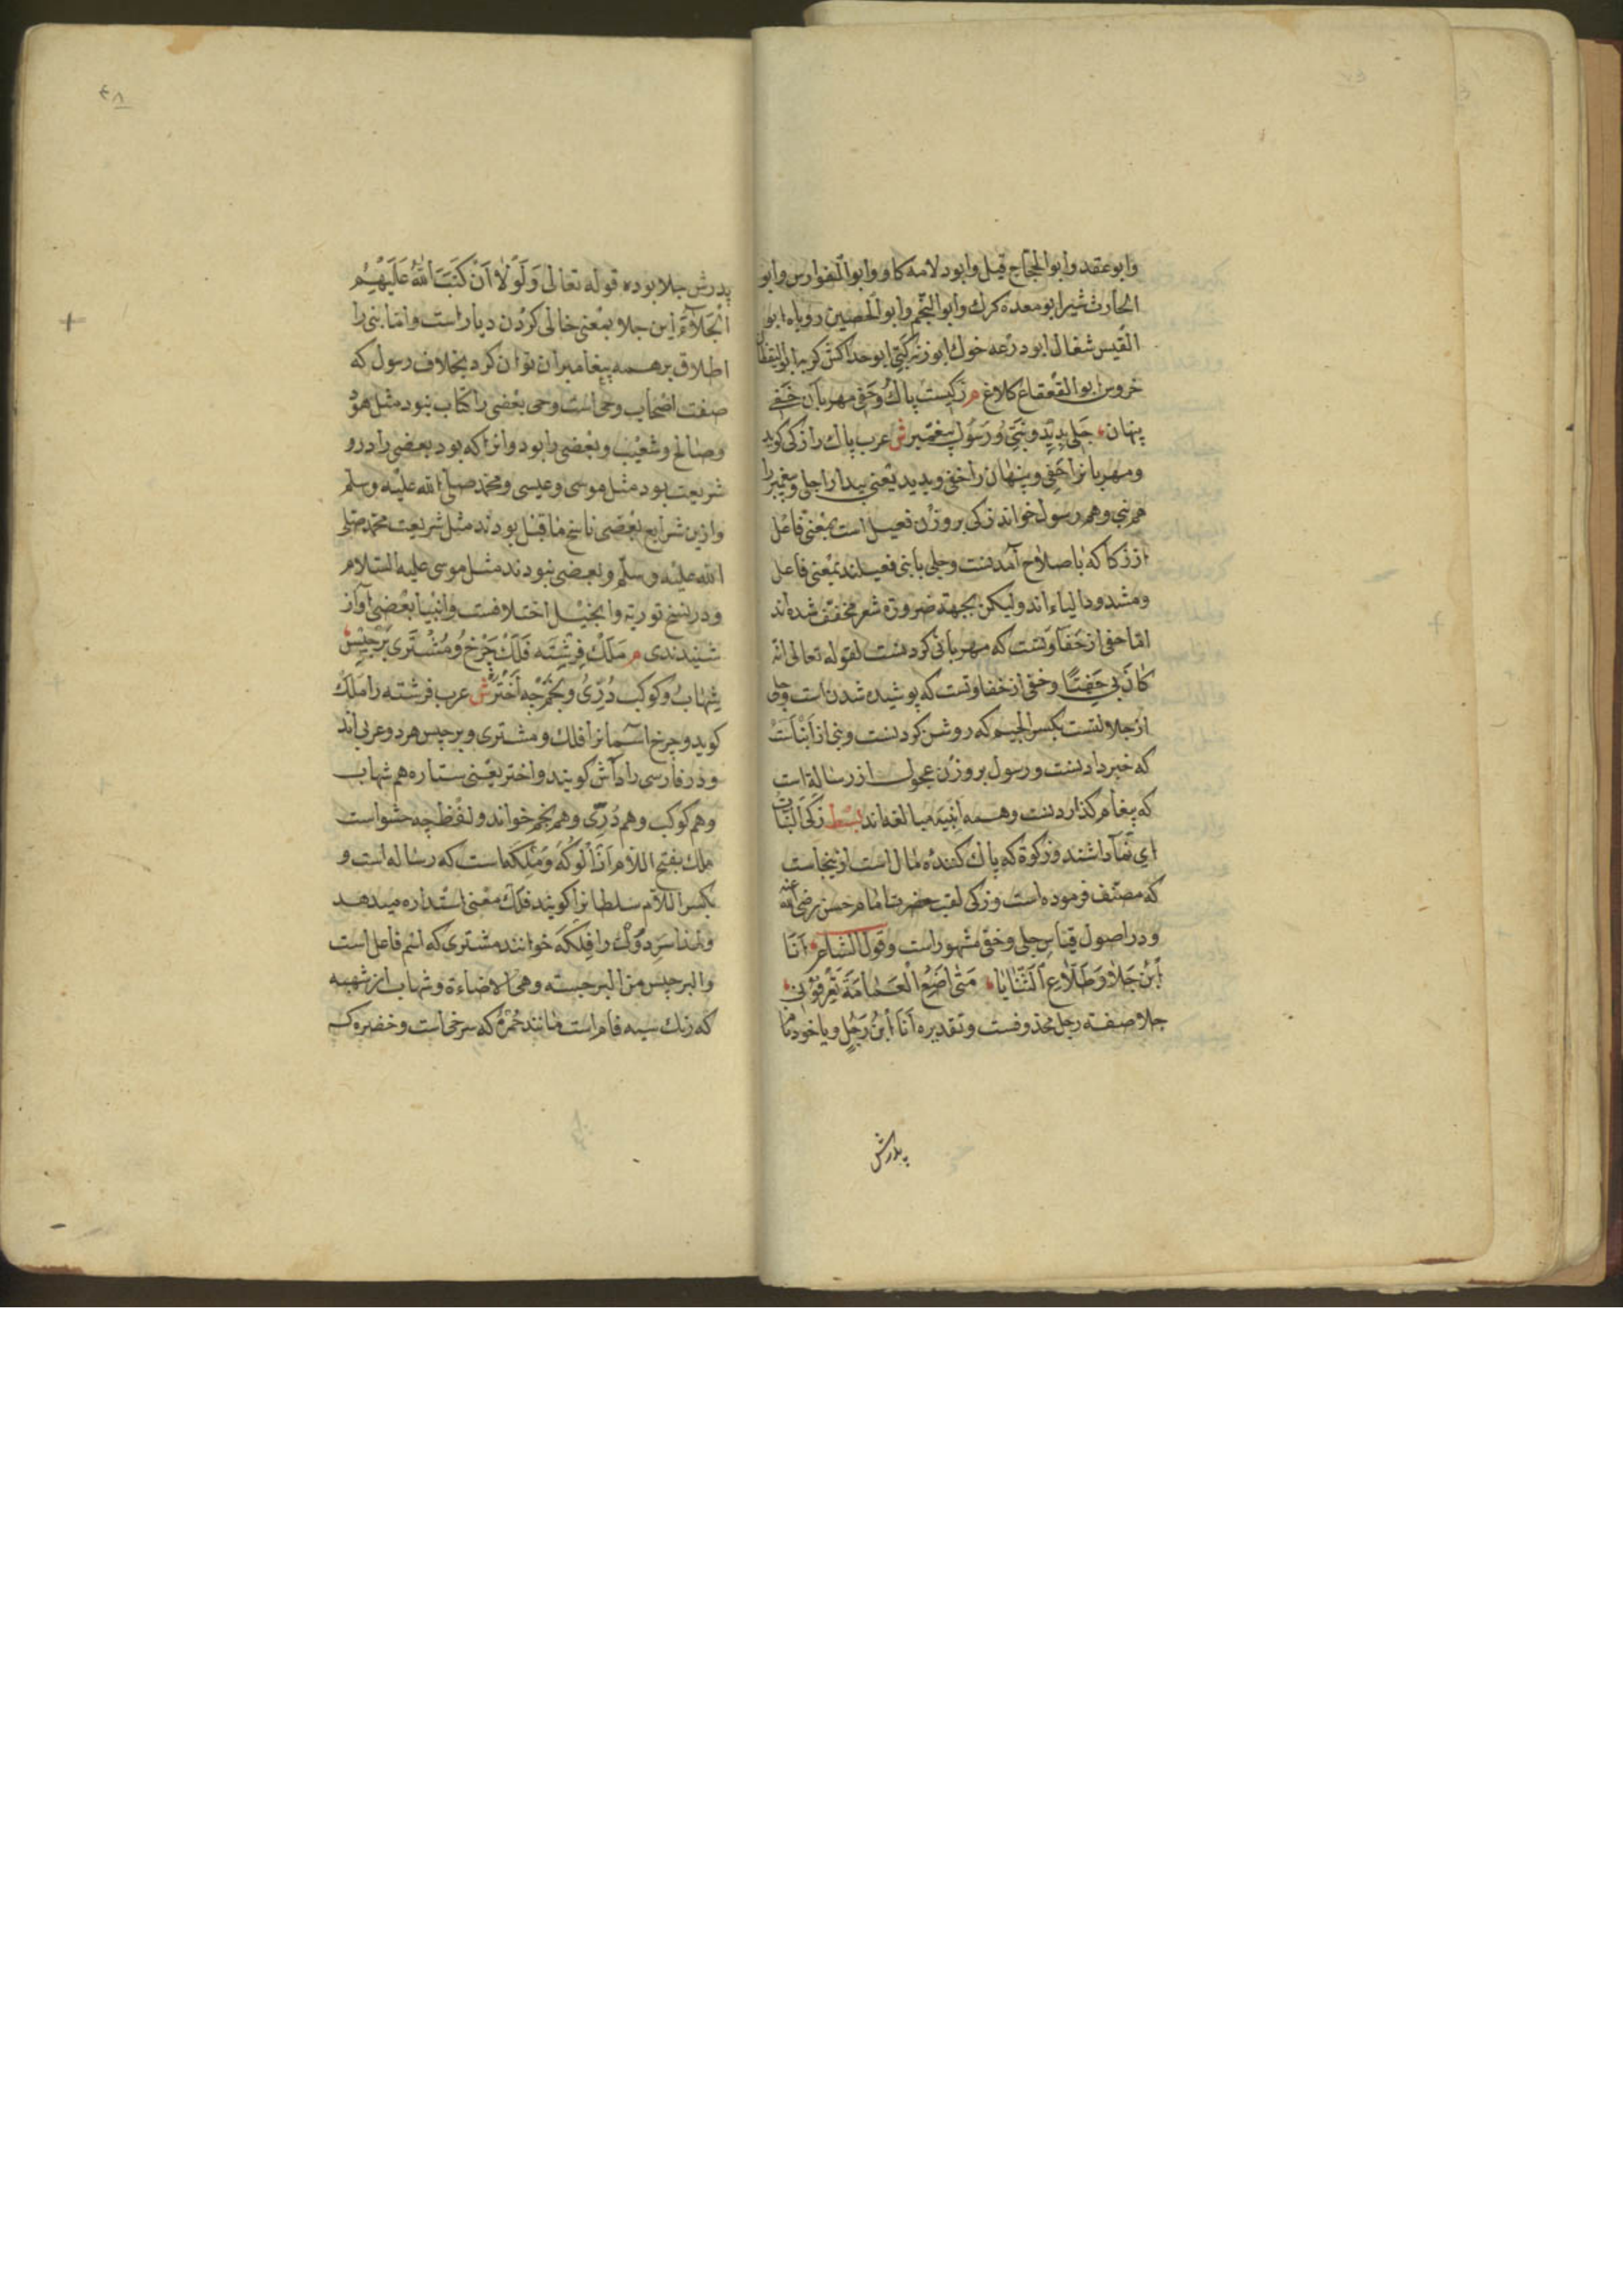 وابوعقد وابوالحجاج فیل وابودلامه کاو وابوالفوارس وابو
الحارث شیر ابومعده کرک وابوالنجم وابوالحصین روباه ابو
القیس شغال ابودرعه خوک ابوزنه کپی ابوخداکش کربه ابوالیقظان
خروس ابوالقعقاع کلاغ م زکیست پاک وحفی مهربان خفی
پنهان جلی پدید ونبی ورسول پیغمبر ش عرب پاک را زکی کوید
ومهربانرا حفی وپنهان را خفی وپدید یعنی پیدا را جلی وپیغمبر را
هم نبی وهم رسول خواند زکی بروزن فعیل است بمعنی فاعل
از زکا که باصلاح آمدنست وجلی بانبی فعیلند بمعنی فاعل
ومشدودالیاءاند ولیکن بجهة ضرورة شعر مخفف شده اند
اما حفی از حفاوتست که مهربانی کردنست لقوله تعالی انه
کان بی حفیّا وخفی از خفاوتست که پوشیده شدن است وجلی
از جلالتست بکسر الجیم که روشن کردنست ونبی از انباست
که خبردادنست ورسول بروزن عجول از رسالة است
که پیغام کذاردنست وهمه ابنیه مبالغه اند بسط زکی النبات
ای نما راشند وزکوة که پاک کننده مال است ازینجاست
که مصنف فرموده است وزکی لقب حضرت امام حسن رضی الله عنه
ودر اصول قیاس جلی وخفی مشهور است وقول الشاعر انا
ابن جلا وطلاع الثنایا متی اضع العمامة تعرفونی
جلا صفة رجل محذوفست وتقدیره انا ابن رجل ویا خود نام
پدرش
۴۸
پدرش جلا بوده قوله تعالی ولولا ان کتب الله علیهم
الجلاء این جلا بمعنی خالی کردن دیار است واما نبی را
اطلاق برهمه پیغامبران توان کرد بخلاف رسول که
صفت اصحاب وحی است وحی بعضی را کتاب نبود مثل هود
وصالح وشعیب وبعضی را بود وانرا که بود بعضی را درو
شریعت بود مثل موسی وعیسی ومحمد صلی الله علیه وسلم
وازین شرایع بعضی ناسخ ماقبل بودند مثل شریعت محمد صلی
الله علیه وسلم وبعضی نبودند مثل موسی علیه السلام
ودر نسخ توریة وانجیل اختلافست وانبیا بعضی آواز
شنیدندی م ملک فرشته فلک چرخ ومشتری برجیس
شهاب وکوکب دری ونجم چه اختر ش عرب فرشته را ملک
کوید وچرخ اسمانرا فلک ومشتری وبرجیس هردو عربی اند
ودر فارسی رادآش کویند واختر یعنی ستاره هم شهاب
وهم کوکب وهم درّی وهم نجم خواند ولفظ چه حشو است
ملک بفتح اللام از الوکه وملکه است که رساله است و
بکسر اللام سلطانرا کویند فلک معنی استداره میدهد
ولهذا سر دوک را فلکه خوانند مشتری که اسم فاعل است
والبرجیس من البرجسته وهی الاضاءة وشهاب از شهبه
که رنک سیه فام است مانند حمره که سرخی است وخضره که